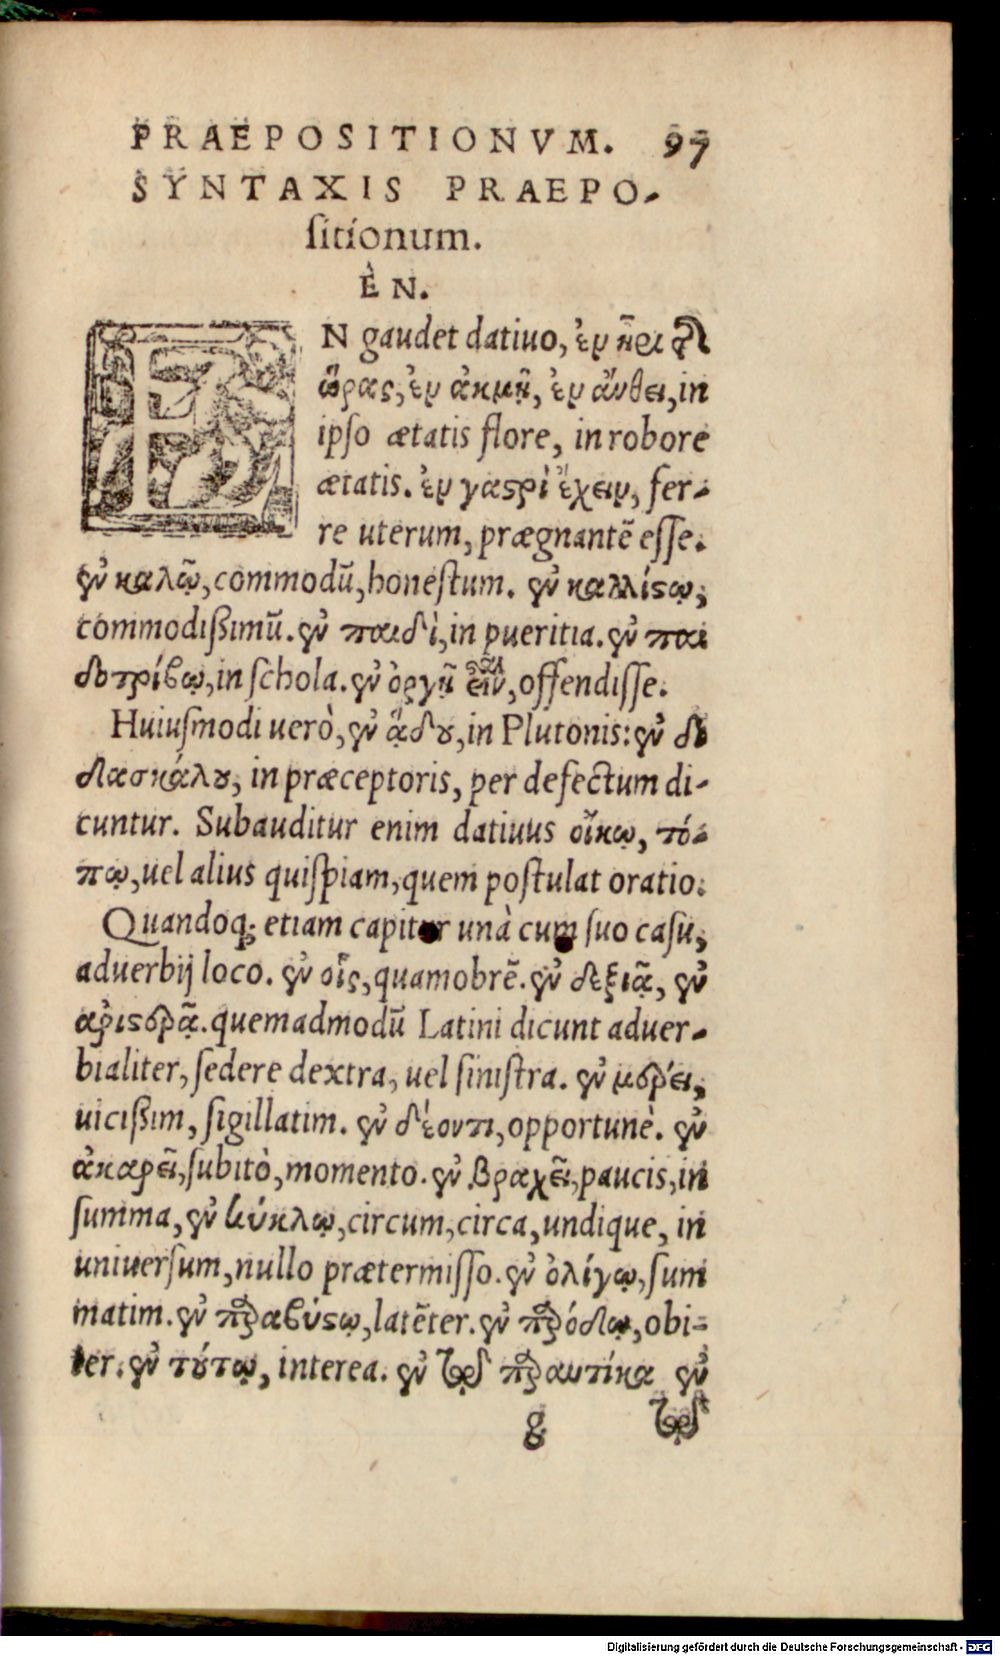 PRAEPOSITIONVM. 97
SYNTAXIS PRAEPO-
sitionum.
ÈN.
EN gaudet datiuo, ἐν ἦρι τῆς
ὥρας, ἐν ἀκμῇ, ἐν ἄνθει, in
ipso ætatis flore, in robore
ætatis. ἐν γαστρὶ ἔχειν, fer-
re uterum, prægnantē esse.
ἐν καλῷ, commodū, honestum. ἐν καλλίστῳ,
commodißimū. ἐν παιδὶ, in pueritia. ἐν παι
δοτρίβῳ, in schola. ἐν ὀργῇ εἶναι, offendisse.
Huiusmodi uerò, ἐν ᾅδου, in Plutonis: ἐν δι
δασκάλου, in præceptoris, per defectum di-
cuntur. Subauditur enim datiuus οἴκῳ, τό-
πῳ, uel alius quispiam, quem postulat oratio.
Quandoq; etiam capitur unà cum suo casu,
aduerbij loco. ἐν οἷς, quamobrē. ἐν δεξιᾷ, ἐν
ἀριστερᾷ. quemadmodū Latini dicunt aduer-
bialiter, sedere dextra, uel sinistra. ἐν μέρει,
uicißim, sigillatim. ἐν δέοντι, opportunè. ἐν
ἀκαρεῖ, subitò, momento. ἐν βραχεῖ, paucis, in
summa, ἐν κύκλῳ, circum, circa, undique, in
uniuersum, nullo prætermisso. ἐν ὀλίγῳ, sum
matim. ἐν παραβύστῳ, latēter. ἐν παρόδῳ, obi-
ter. ἐν τούτῳ, interea. ἐν τῷ παραυτίκα ἐν
g τῷ
Digitalisierung gefördert durch die Deutsche Forschungsgemeinschaft - DFG